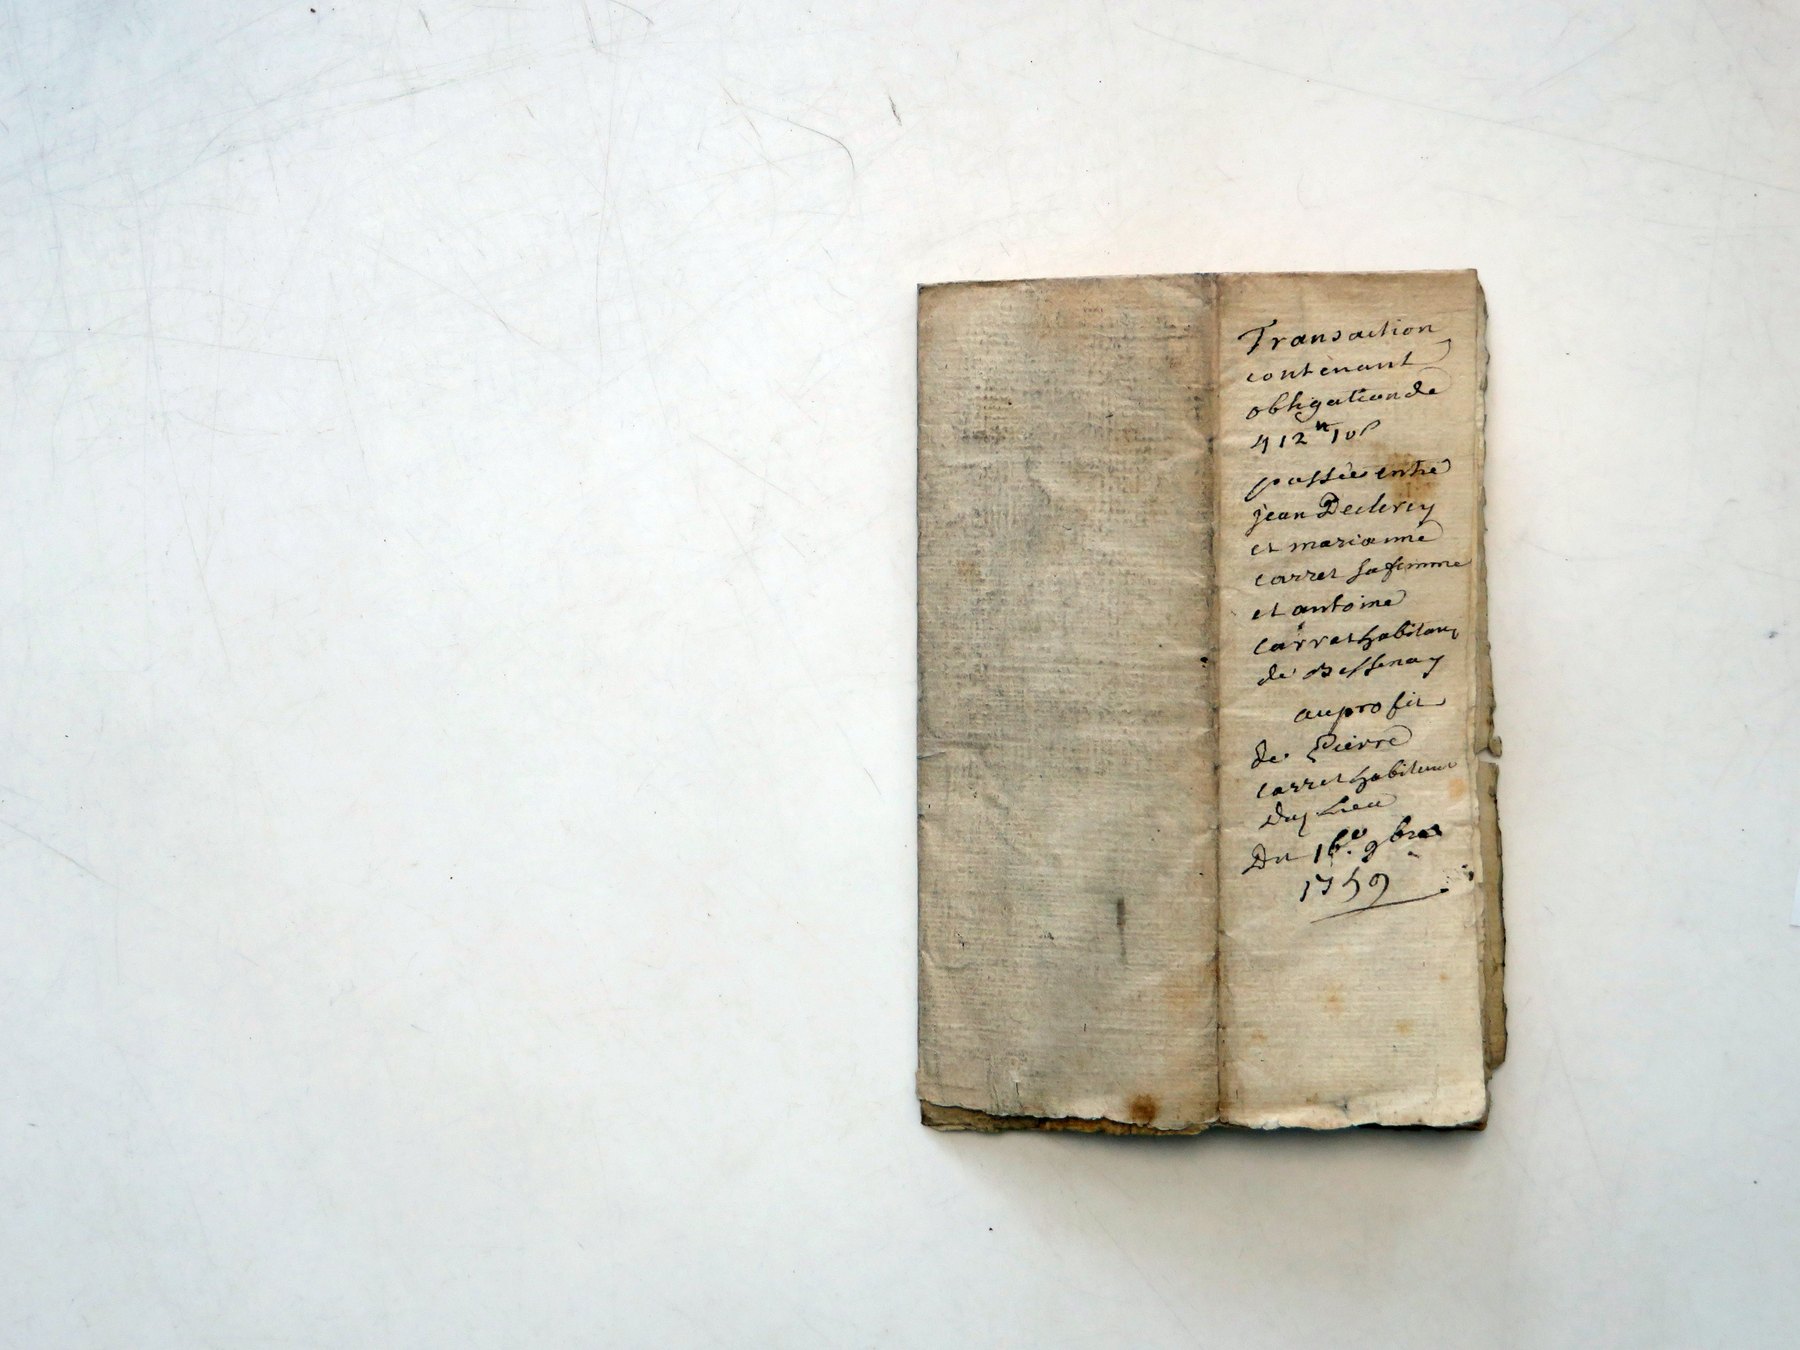 Transaction
contenant
obligation de
412ᴴ 10ˢ
passée entre
jean Declercy
et marianne
carret sa femme
et antoine
carret habitans
de Bessenay
au profit
de Pierre
carret habitant
du lieu
Du 16.e 9bre
1759